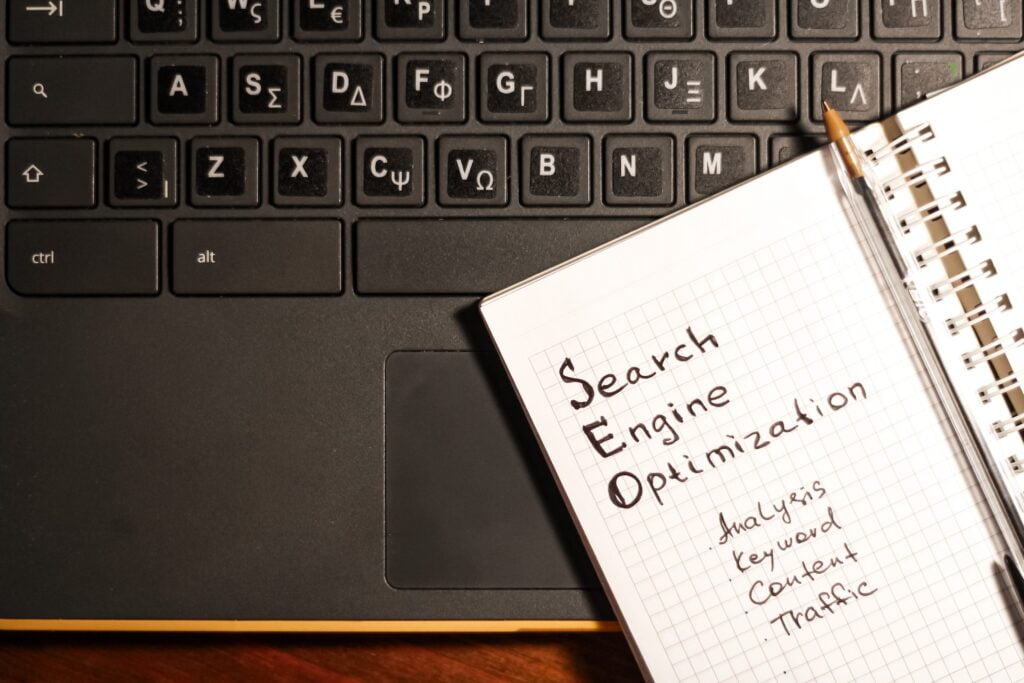 Q W ς E €  R Ρ
A S Σ D Δ F Φ G Γ H J Ξ K L Λ
< > | Z X C Ψ V Ω B N M
ctrl alt
Search
Engine
Optimization
. Analysis
. Keyword
. Content
. Traffic
.